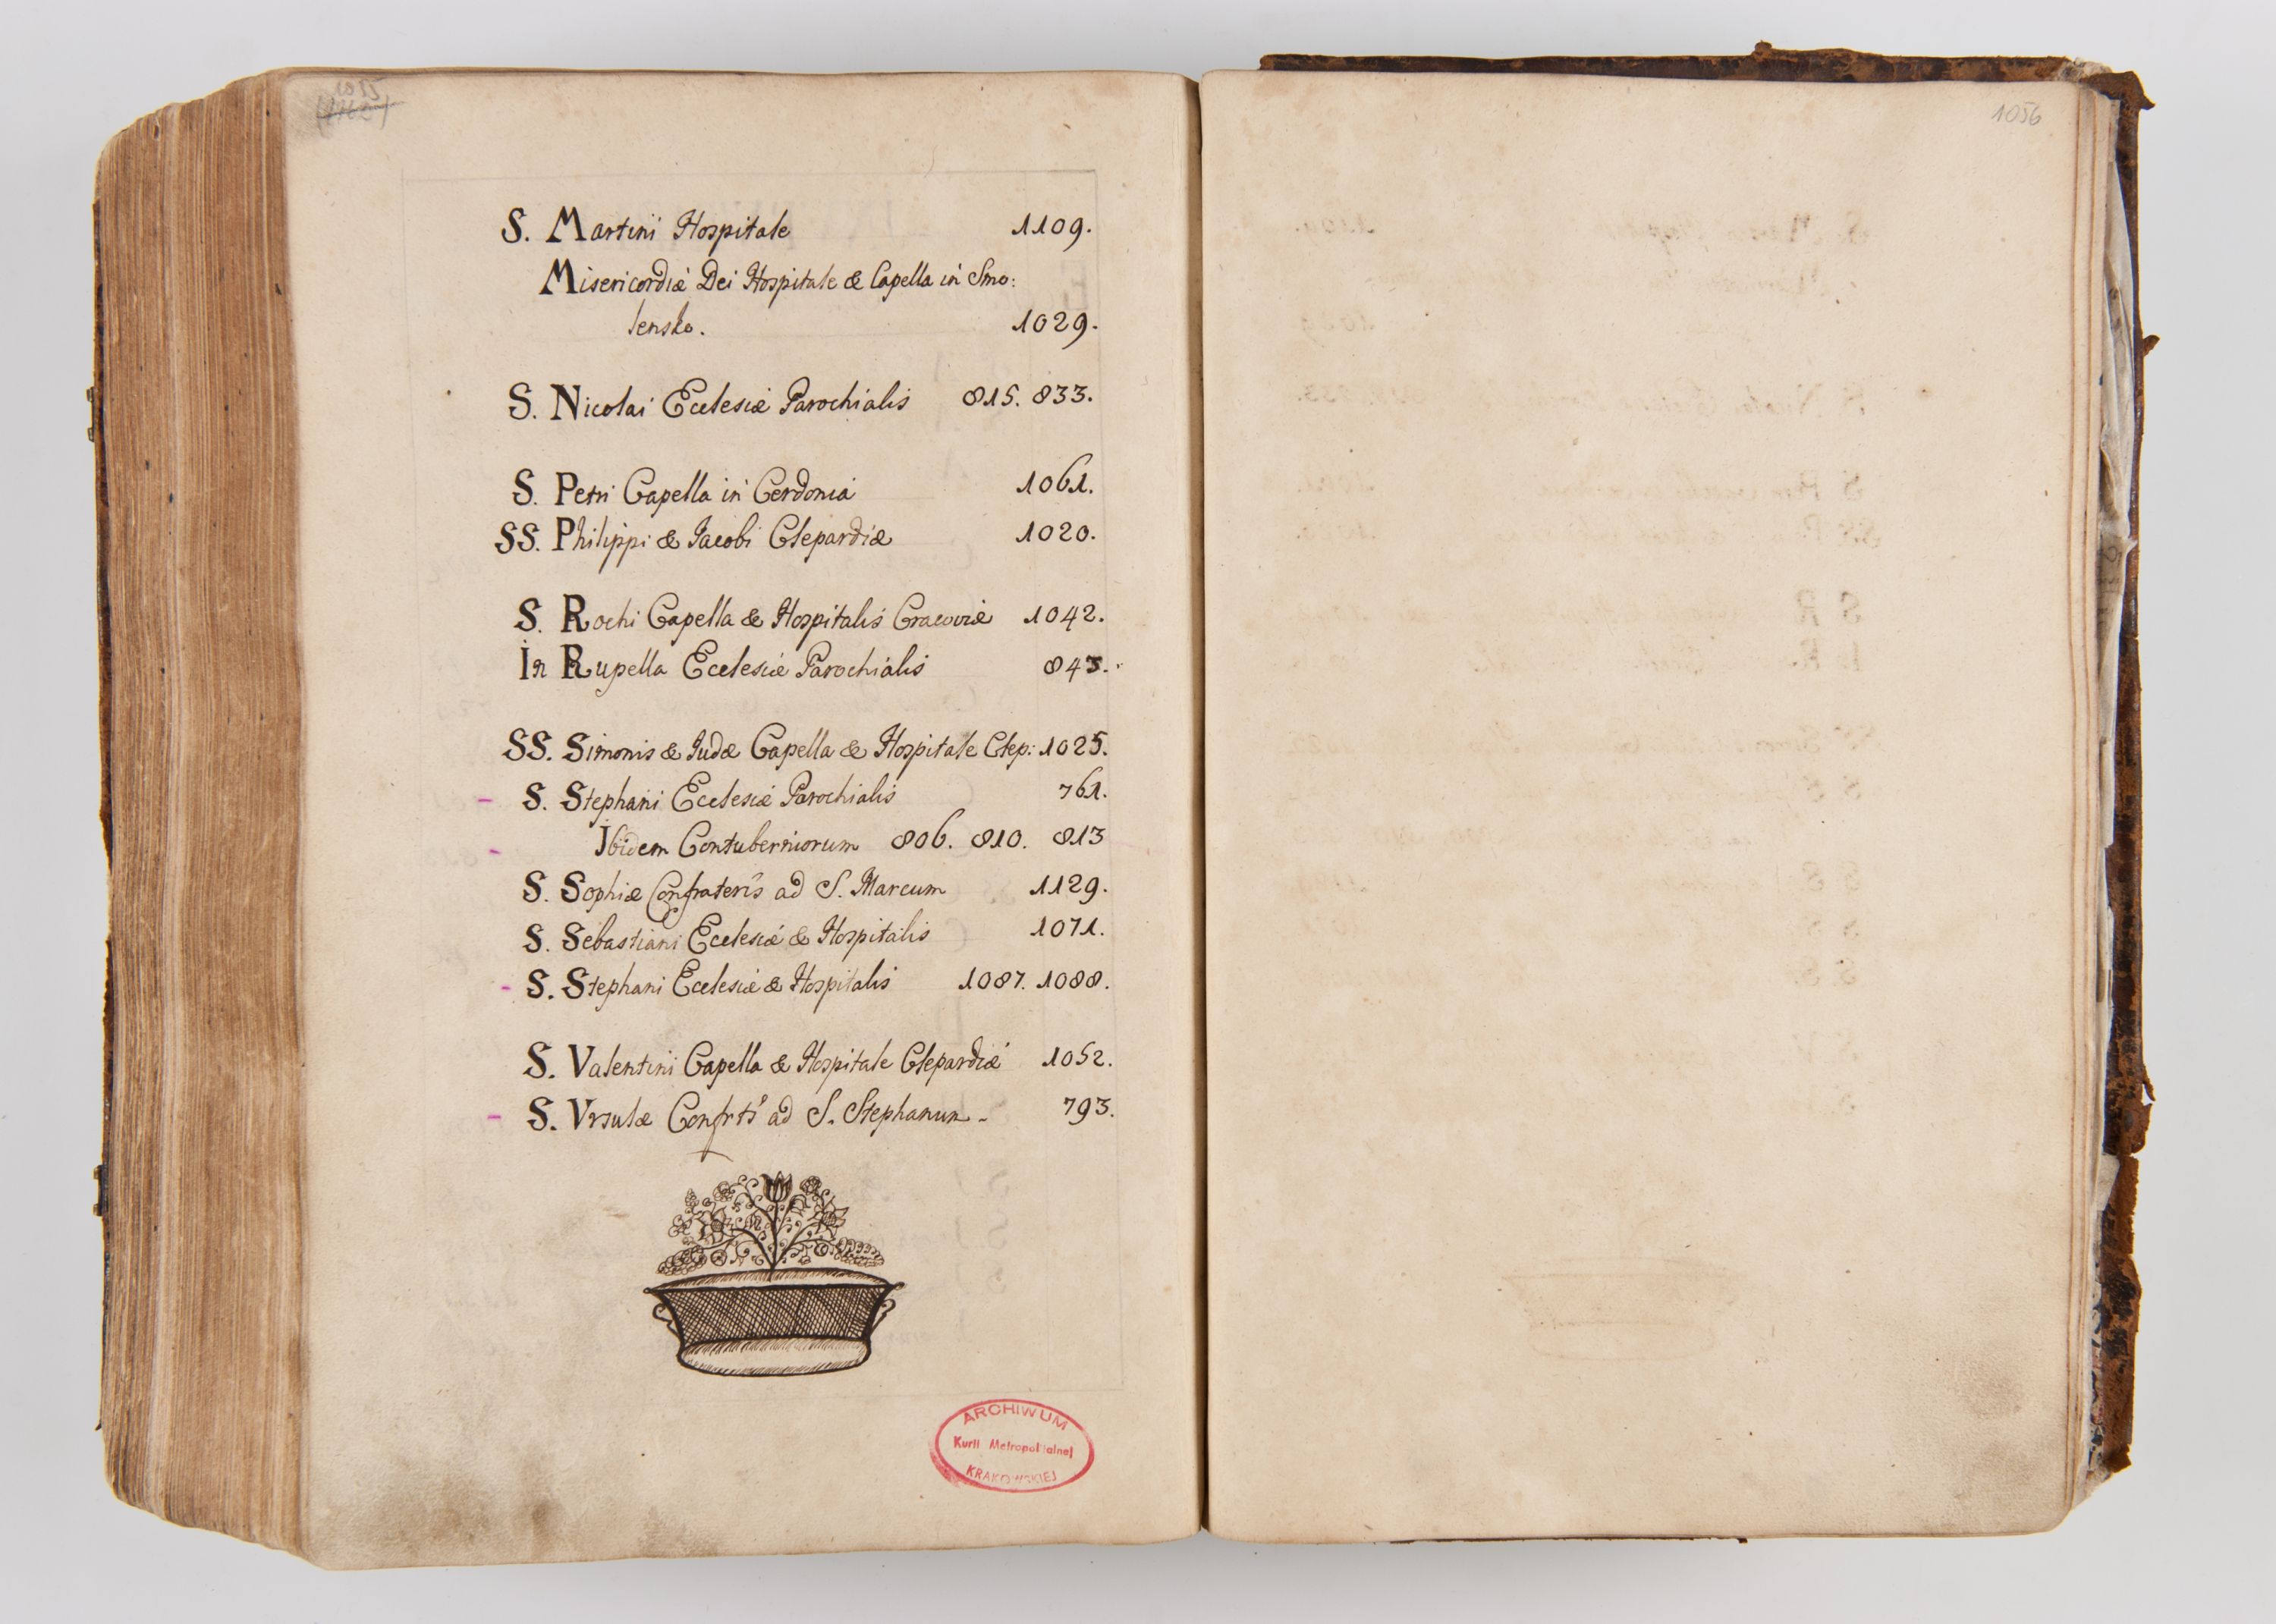 1055
S. Martini Hospitale 1109.
Misericordiæ Dei Hospitale & Capella in Smo:
lensko. 1029.
S. Nicolai Ecclesiæ Parochialis 815. 833.
S. Petri Capella in Cerdonia 1061.
SS. Philippi & Jacobi Clepardiæ 1020.
S. Rochi Capella & Hospitalis Cracoviæ 1042.
In Rupella Ecclesiæ Parochialis 843.
SS. Simonis & Judæ Capella & Hospitale Clep: 1025.
S. Stephani Ecclesiæ Parochialis 761.
Ibidem Contuberniorum 806. 810. 813
S. Sophiæ Confraterîs ad S. Marcum 1129.
S. Sebastiani Ecclesiæ & Hospitalis 1071.
S. Stephani Ecclesiæ & Hospitalis 1087. 1088.
S. Valentini Capella & Hospitale Clepardiæ 1052.
S. Vrsulæ Confrtî ad S. Stephanum - 793.
ARCHIWUM
Kurii Metropolitalnej
KRAKOWSKIEJ
1056